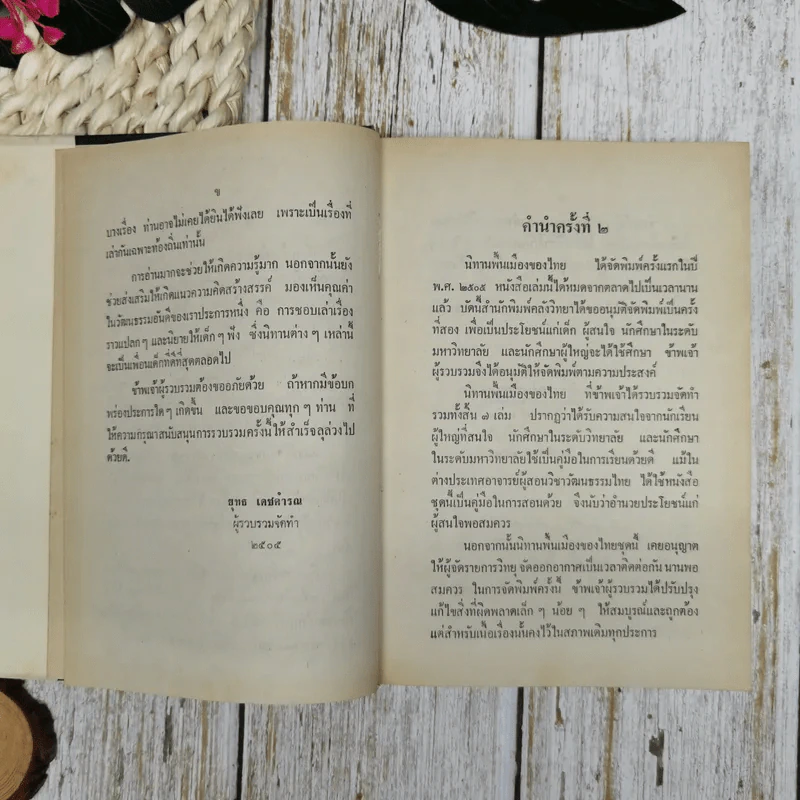 ข
บางเรื่อง ท่านอาจไม่เคยได้ยินได้ฟังเลย เพราะเป็นเรื่องที่
เล่ากันเฉพาะท้องถิ่นเท่านั้น
การอ่านมากจะช่วยให้เกิดความรู้มาก นอกจากนั้นยัง
ช่วยส่งเสริมให้เกิดแนวความคิดสร้างสรรค์ มองเห็นคุณค่า
ในวัฒนธรรมอันดีของเราประการหนึ่ง คือ การชอบเล่าเรื่อง
ราวแปลก ๆ และนิยายให้เด็ก ๆ ฟัง ซึ่งนิทานต่าง ๆ เหล่านี้
จะเป็นเพื่อนเด็กที่ดีที่สุดตลอดไป
ข้าพเจ้าผู้รวบรวมต้องขออภัยด้วย ถ้าหากมีข้อบก
พร่องประการใด ๆ เกิดขึ้น และขอขอบคุณทุก ๆ ท่าน ที่
ให้ความกรุณาสนับสนุนการรวบรวมครั้งนี้ให้สำเร็จลุล่วงไป
ด้วยดี.
ยุทธ เดชคำรณ
ผู้รวบรวมจัดทำ
๒๕๐๕
คำนำครั้งที่ ๒
นิทานพื้นเมืองของไทย ได้จัดพิมพ์ครั้งแรกในปี
พ.ศ. ๒๕๐๕ หนังสือเล่มนี้ได้หมดจากตลาดไปเป็นเวลานาน
แล้ว บัดนี้สำนักพิมพ์คลังวิทยาได้ขออนุมัติจัดพิมพ์เป็นครั้ง
ที่สอง เพื่อเป็นประโยชน์แก่เด็ก ผู้สนใจ นักศึกษาในระดับ
มหาวิทยาลัย และนักศึกษาผู้ใหญ่จะได้ใช้ศึกษา ข้าพเจ้า
ผู้รวบรวมจึงได้อนุมัติให้จัดพิมพ์ตามความประสงค์
นิทานพื้นเมืองของไทย ที่ข้าพเจ้าได้รวบรวมจัดทำ
รวมทั้งสิ้น ๗ เล่ม ปรากฏว่าได้รับความสนใจจากนักเรียน
ผู้ใหญ่ที่สนใจ นักศึกษาในระดับวิทยาลัย และนักศึกษา
ในระดับมหาวิทยาลัยใช้เป็นคู่มือในการเรียนด้วยดี แม้ใน
ต่างประเทศอาจารย์ผู้สอนวิชาวัฒนธรรมไทย ได้ใช้หนังสือ
ชุดนี้เป็นคู่มือในการสอนด้วย จึงนับว่าอำนวยประโยชน์แก่
ผู้สนใจพอสมควร
นอกจากนั้นนิทานพื้นเมืองของไทยชุดนี้ เคยอนุญาต
ให้ผู้จัดรายการวิทยุ จัดออกอากาศเป็นเวลาติดต่อกัน นานพอ
สมควร ในการจัดพิมพ์ครั้งนี้ ข้าพเจ้าผู้รวบรวมได้ปรับปรุง
แก้ไขสิ่งที่ผิดพลาดเล็ก ๆ น้อย ๆ ให้สมบูรณ์และถูกต้อง
แต่สำหรับเนื้อเรื่องนั้นคงไว้ในสภาพเดิมทุกประการ